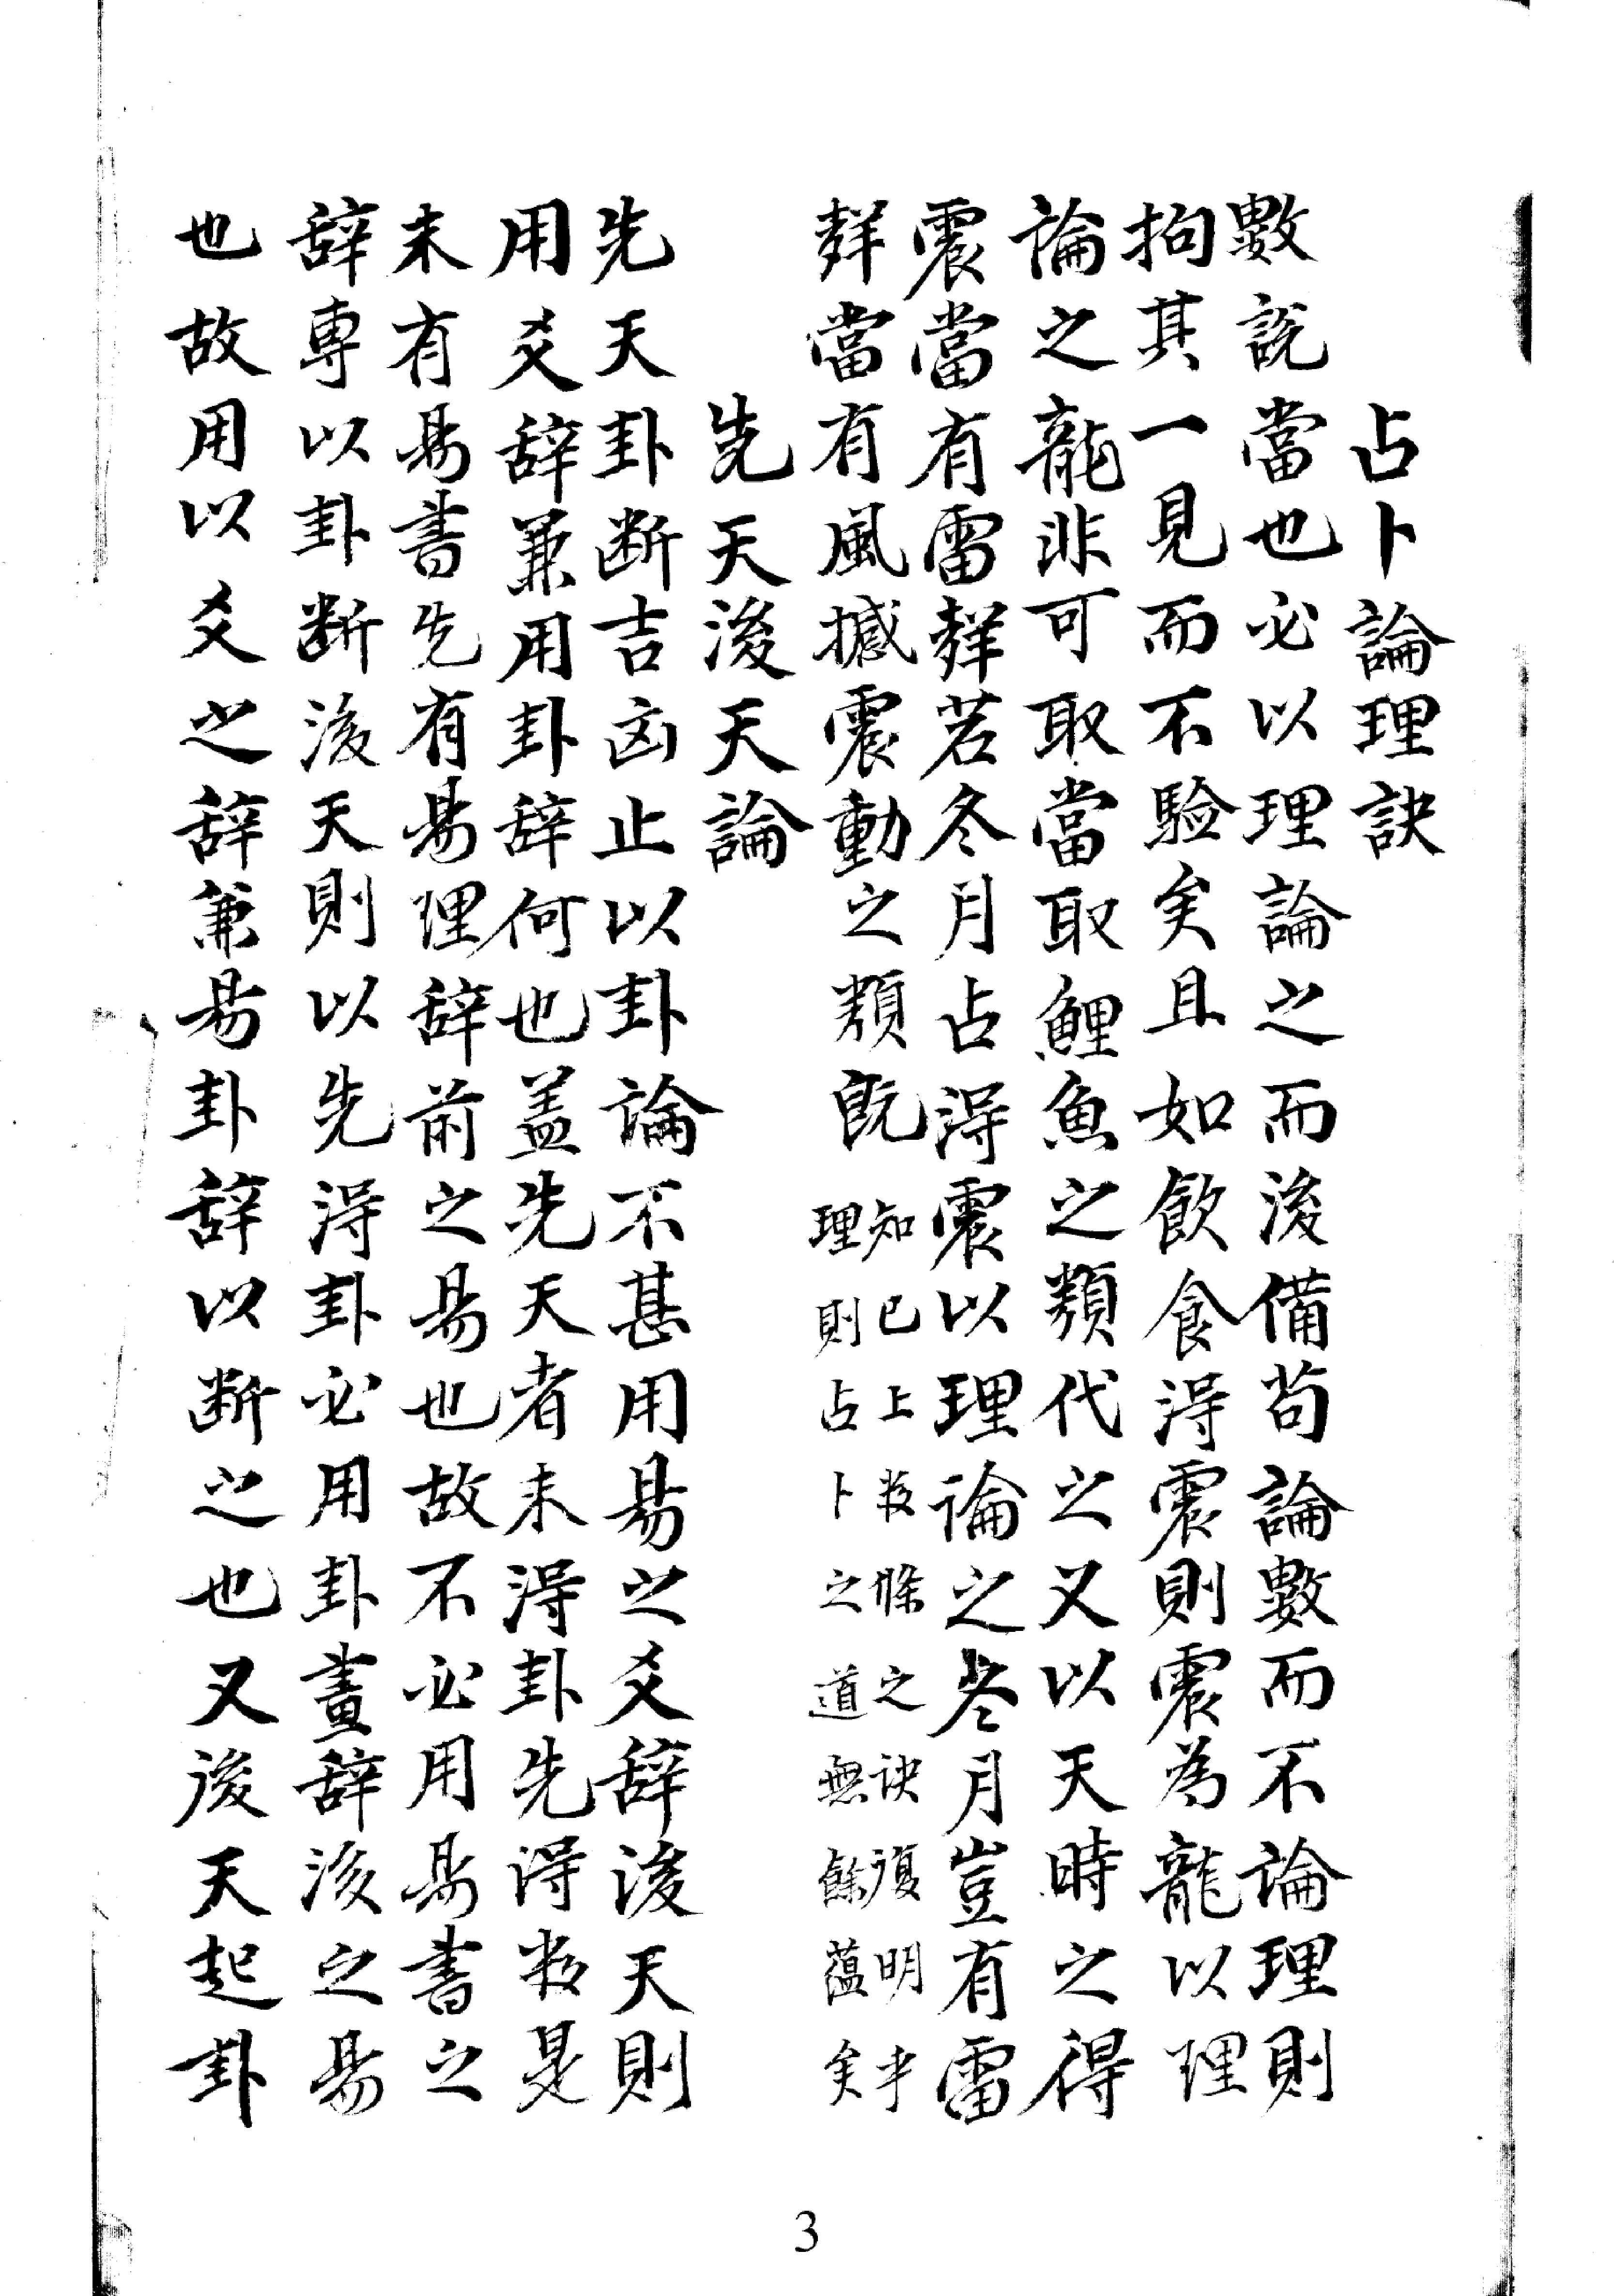 占卜論理訣
數說當也必以理論之而後備苟論數而不論理則
拘其一見而不驗矣且如飲食得震則震為龍以理
論之龍非可取當取鯉魚之類代之又以天時之得
震當有雷聲若冬月占得震以理論之冬月豈有雷
聲當有風撼震動之類既
知已上数條之訣復明乎
理則占卜之道無餘蘊矣
先天後天論
先天卦断吉凶止以卦論不甚用易之爻辞後天則
用爻辞兼用卦辞何也盖先天者未得卦先得数是
未有易書先有易理辞前之易也故不必用易書之
辞專以卦断後天則以先得卦必用卦畫辞後之易
也故用以爻之辞兼易卦辞以断之也又後天起卦
3